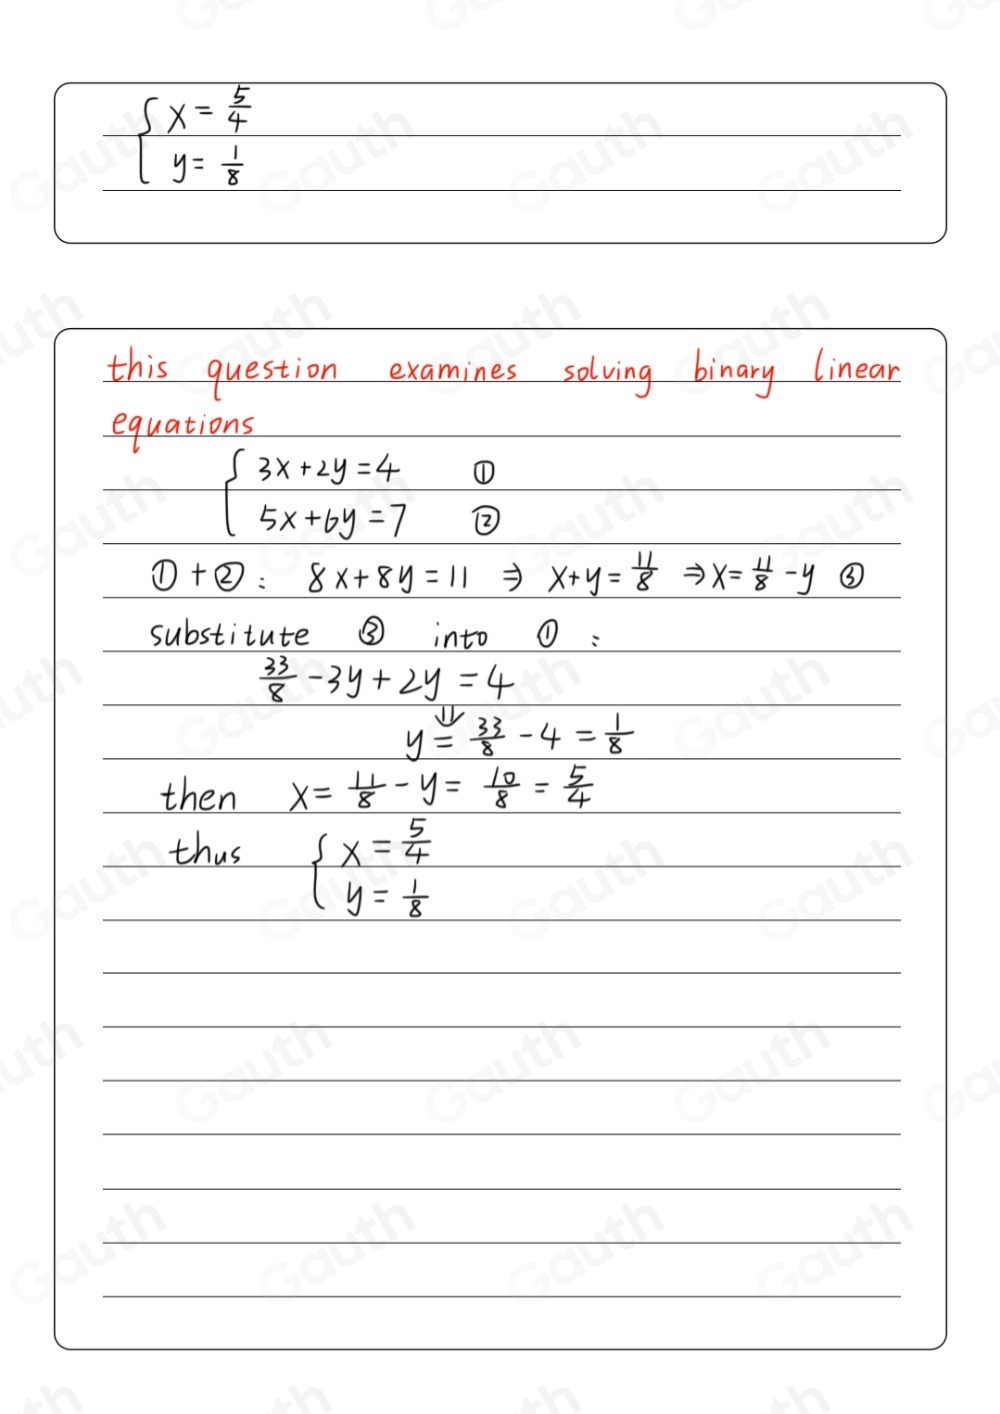 { x = 5/4
y = 1/8
this question examines solving binary linear
equations
{ 3x+2y=4 ①
5x+6y=7 ②
①+②: 8x+8y=11 ⇒ x+y=11/8 ⇒ x=11/8-y ③
substitute ③ into ①:
33/8-3y+2y=4
⇓
y=33/8-4=1/8
then x=11/8-y=10/8=5/4
thus { x=5/4
y=1/8